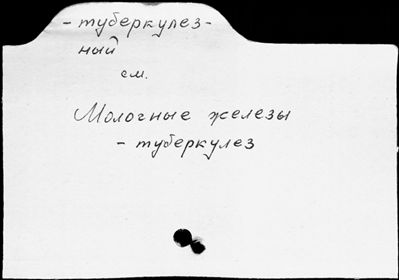 - туберкулез-
ный
см.
Молочные железы
- туберкулез